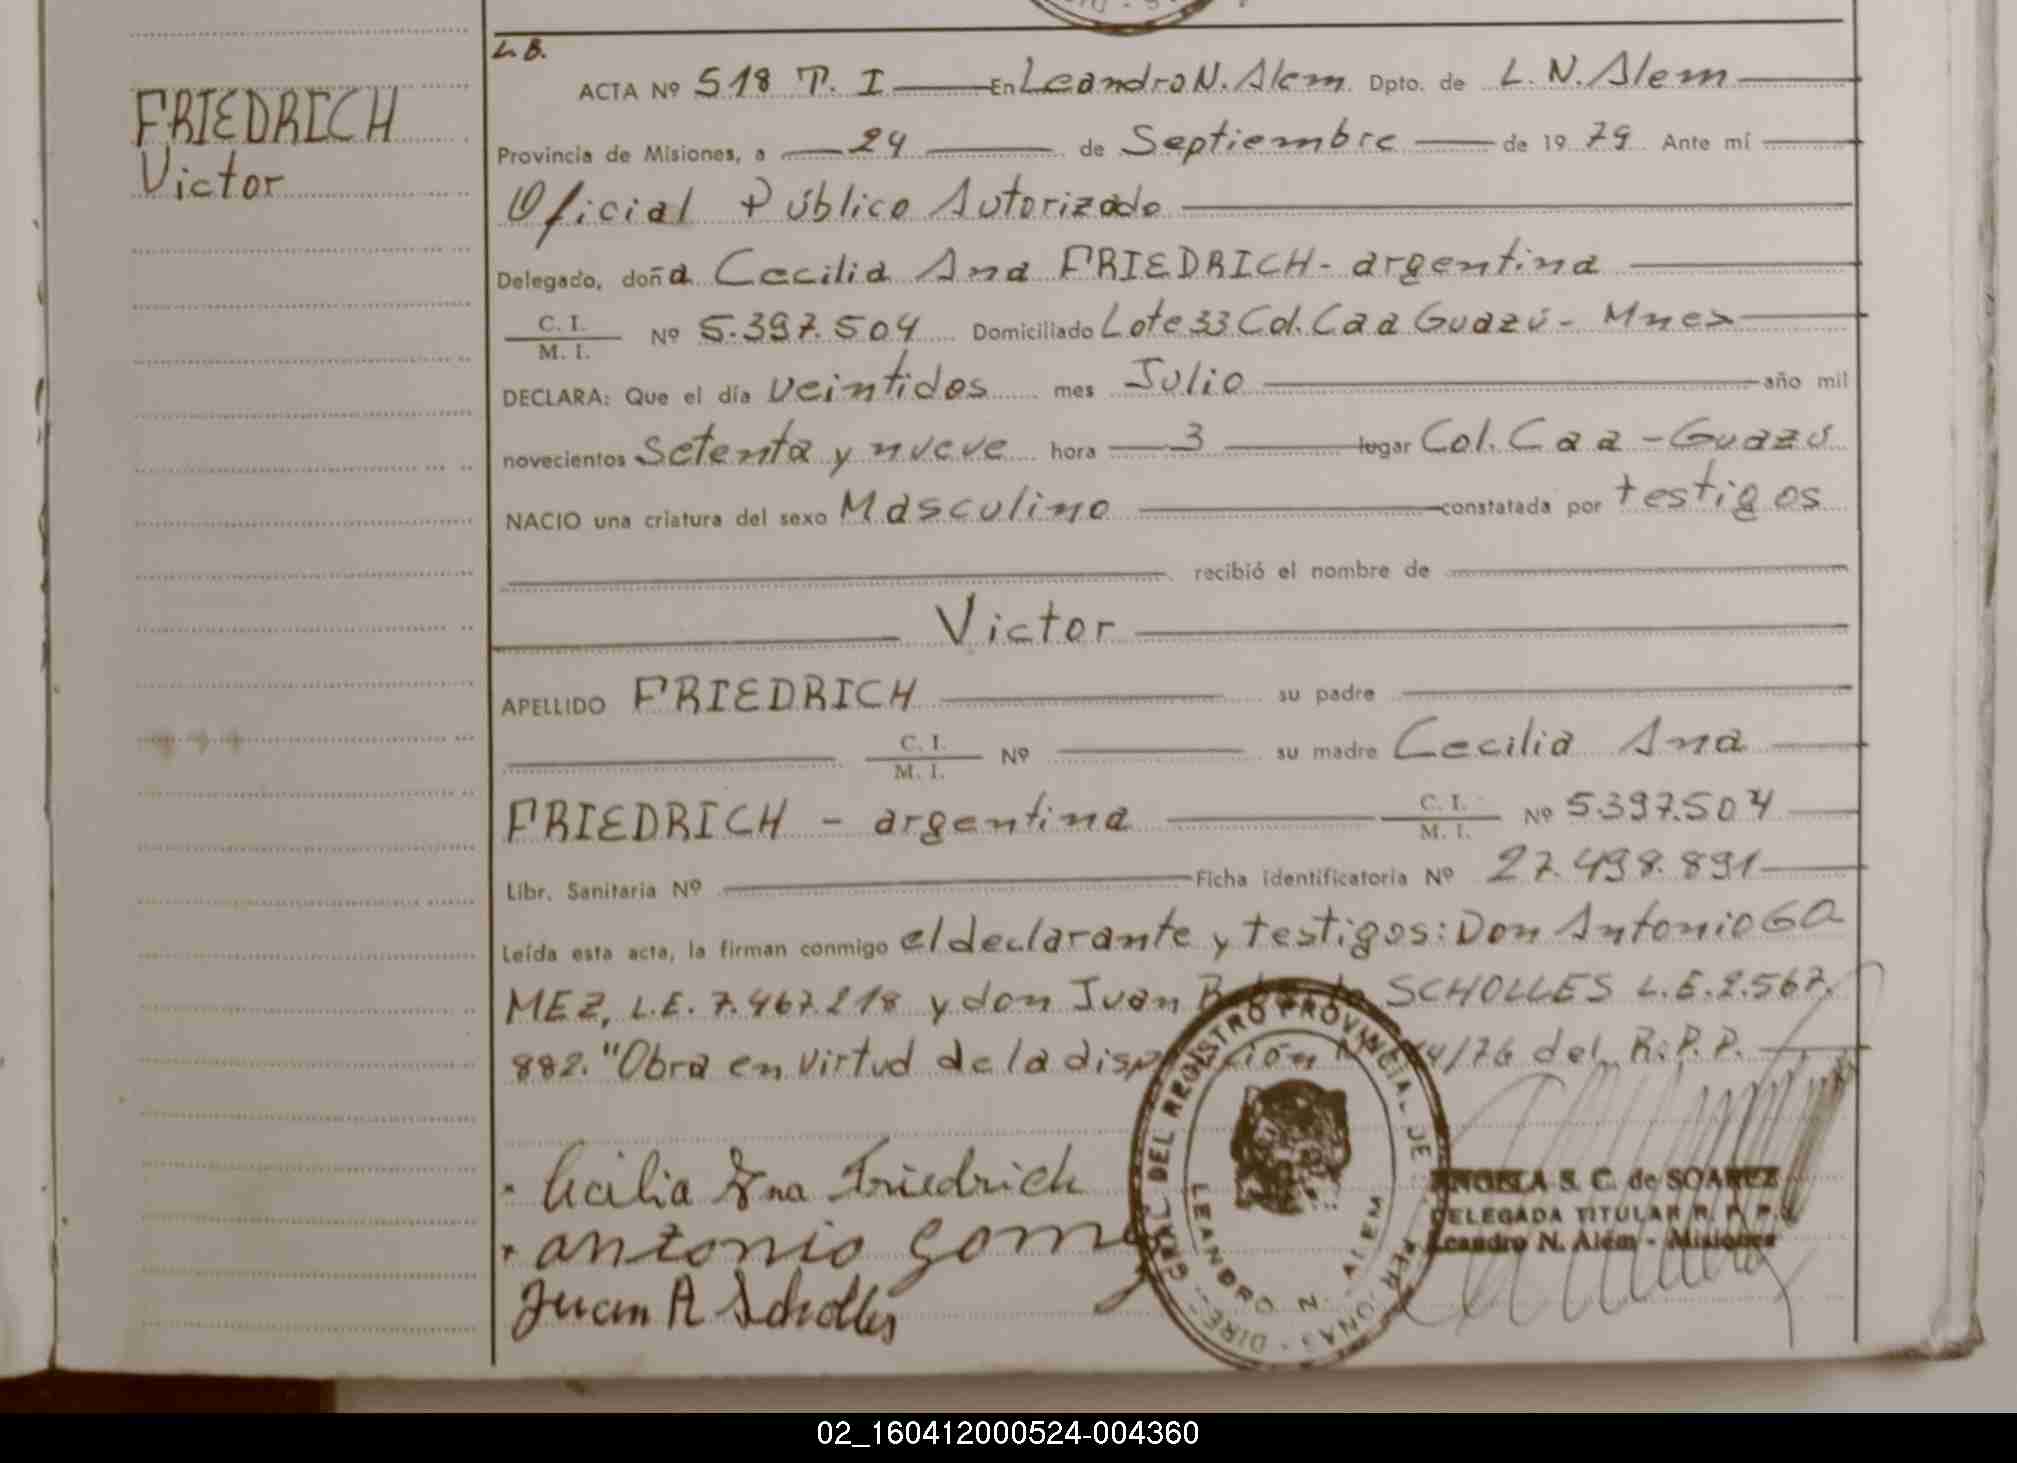 FRIEDRICH
Victor
L. B.
ACTA Nº 518 T. I En Leandro N. Alem Dpto. de L. N. Alem
Provincia de Misiones, a 24 de Septiembre de 1979 Ante mí
Oficial Público Autorizado
Delegado, doña Cecilia Ana FRIEDRICH - argentina
C. I.
M. I. Nº 5.397.504 Domiciliado Lote 33 Col. Caa Guazú - Mnes
DECLARA: Que el día veintidos mes Julio año mil
novecientos setenta y nueve hora 3 lugar Col. Caa - Guazú
NACIO una criatura del sexo Masculino constatada por testigos
recibió el nombre de
Victor
APELLIDO FRIEDRICH su padre
C. I.
M. I. Nº su madre Cecilia Ana
FRIEDRICH - argentina C. I.
M. I. Nº 5.397.504
Libr. Sanitaria Nº Ficha identificatoria Nº 27.498.891
Leída esta acta, la firman conmigo el declarante y testigos: Don Antonio GO
MEZ, L.E. 7.467.218 y don Juan SCHOLLES L.E. 2.567.
882. "Obra en virtud de la disposición /76 del R.P.P.
Cecilia Ana Friedrich
antonio gomez
Juan A Scholles
DIREC. GRAL DEL REGISTRO PROVINCIAL DE LAS PERSONAS
LEANDRO N. ALEM
ANGELA S. C. de SOAREZ
DELEGADA TITULAR R. P. P.
Leandro N. Alem - Misiones
02_160412000524-004360